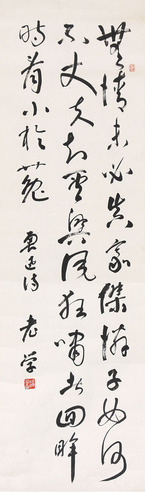 無情未必真豪傑憐子如何
不丈夫知否興風狂嘯者回眸
時看小於菟 魯迅詩 老学